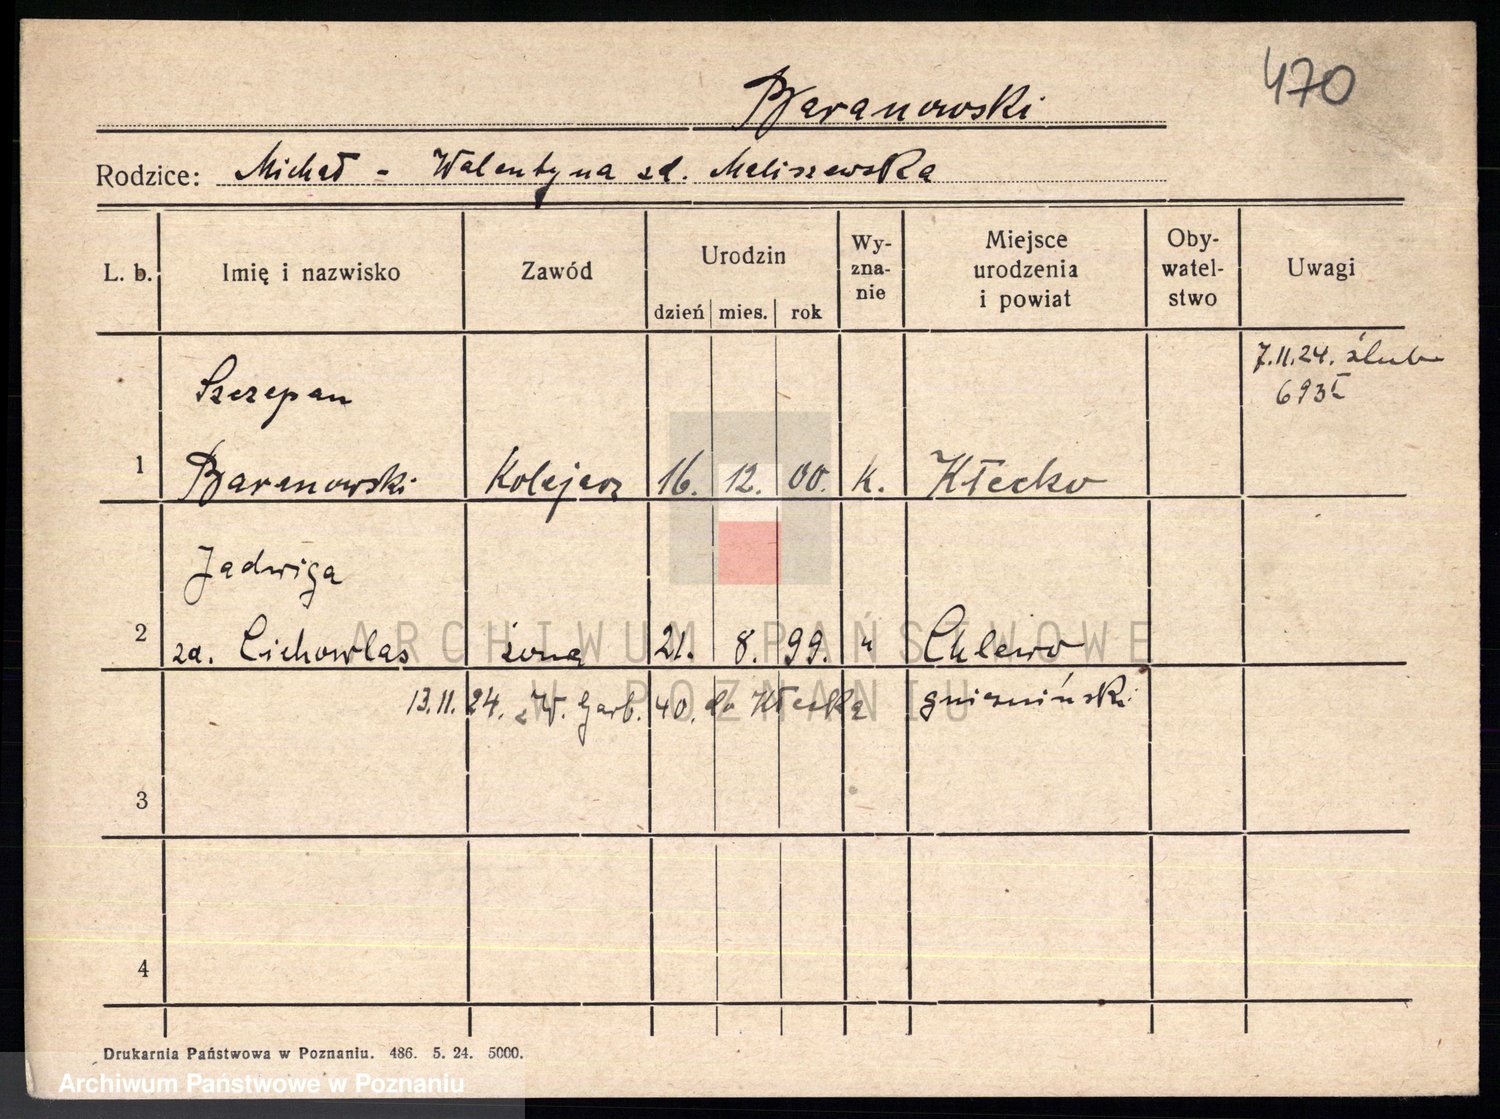 470
Baranowski
Rodzice: Michał - Walentyna zd. Maliszewska
L. b. Imię i nazwisko Zawód Urodzin dzień mies. rok Wy-zna-nie Miejsce urodzenia i powiat Oby-watel-stwo Uwagi
7.11.24. ślub
693
Szczepan
1 Baranowski Kolejarz 16. 12. 00. k. Kłecko
Jadwiga
2 zd. Cichowlas żona 21. 8. 99. " Chlewo
13.11.24. W. Garb. 40. do Kłecka gnieźniński
3
4
Drukarnia Państwowa w Poznaniu. 486. 5. 24. 5000.
ARCHIWUM PAŃSTWOWE
W POZNANIU
Archiwum Państwowe w Poznaniu